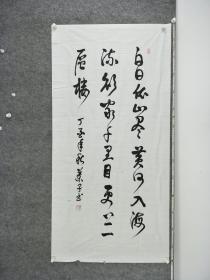 白日依山尽黄河入海
流欲窮千里目更上一
層樓
丁亥年秋